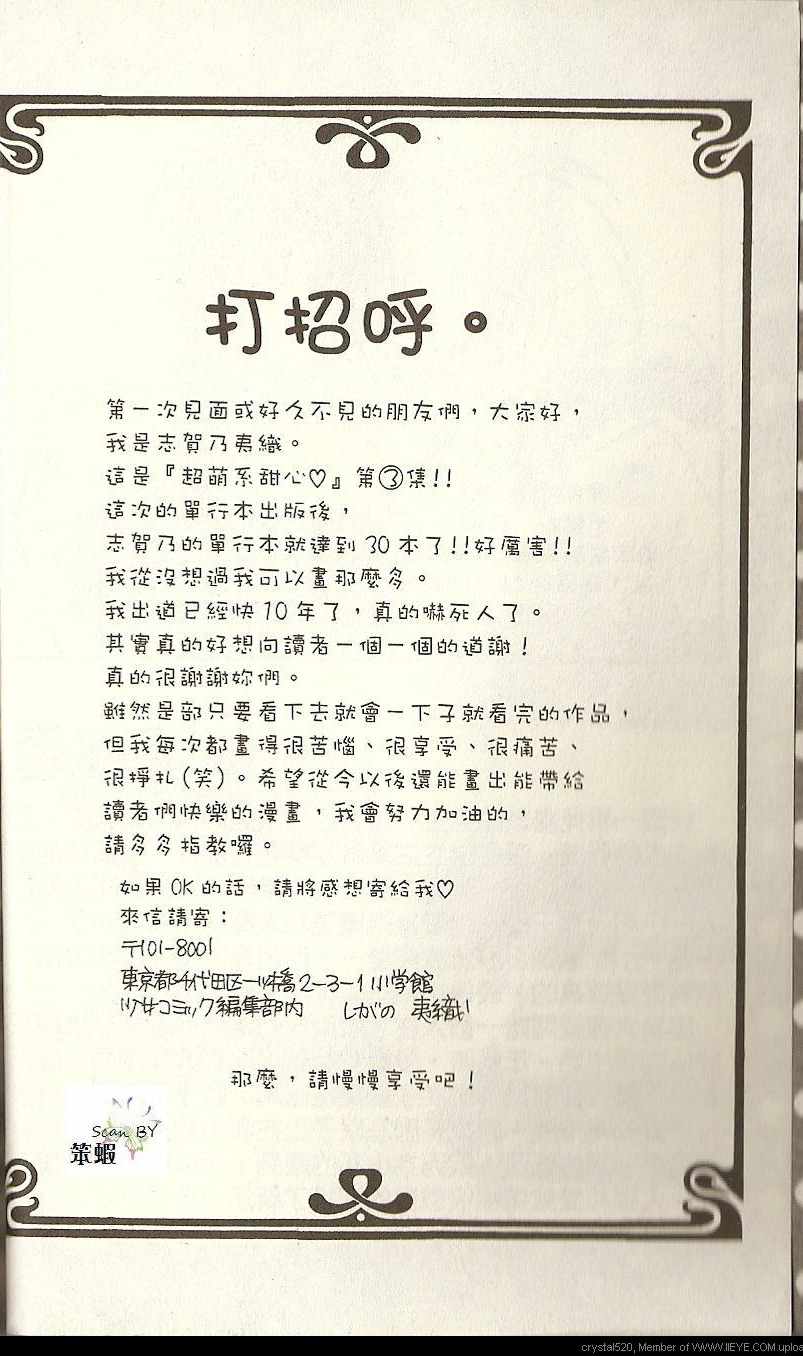 打招呼。
第一次見面或好久不見的朋友們，大家好，
我是志賀乃夷織。
這是『超萌系甜心♡』第③集!!
這次的單行本出版後，
志賀乃的單行本就達到30本了!!好厲害!!
我從沒想過我可以畫那麼多。
我出道已經快10年了，真的嚇死人了。
其實真的好想向讀者一個一個的道謝！
真的很謝謝妳們。
雖然是部只要看下去就會一下子就看完的作品，
但我每次都畫得很苦惱、很享受、很痛苦、
很掙扎(笑)。希望從今以後還能畫出能帶給
讀者們快樂的漫畫，我會努力加油的，
請多多指教囉。
如果OK的話，請將感想寄給我♡
來信請寄：
〒101-8001
東京都千代田区一ツ橋2-3-1小学館
少女コミック編集部内 しがの 夷織
那麼，請慢慢享受吧！
Scan BY
笨蝦
crystal520, Member of WWW.IIEYE.COM.uploa